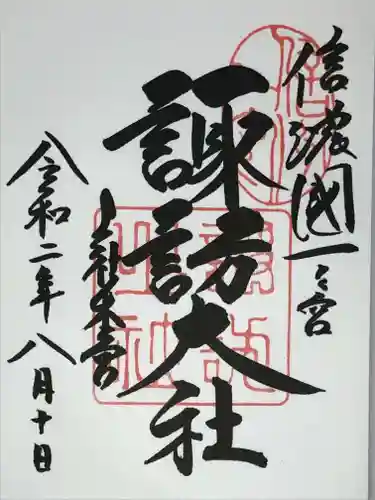 信濃國一之宮
諏訪大社
上社本宮
令和二年八月十日